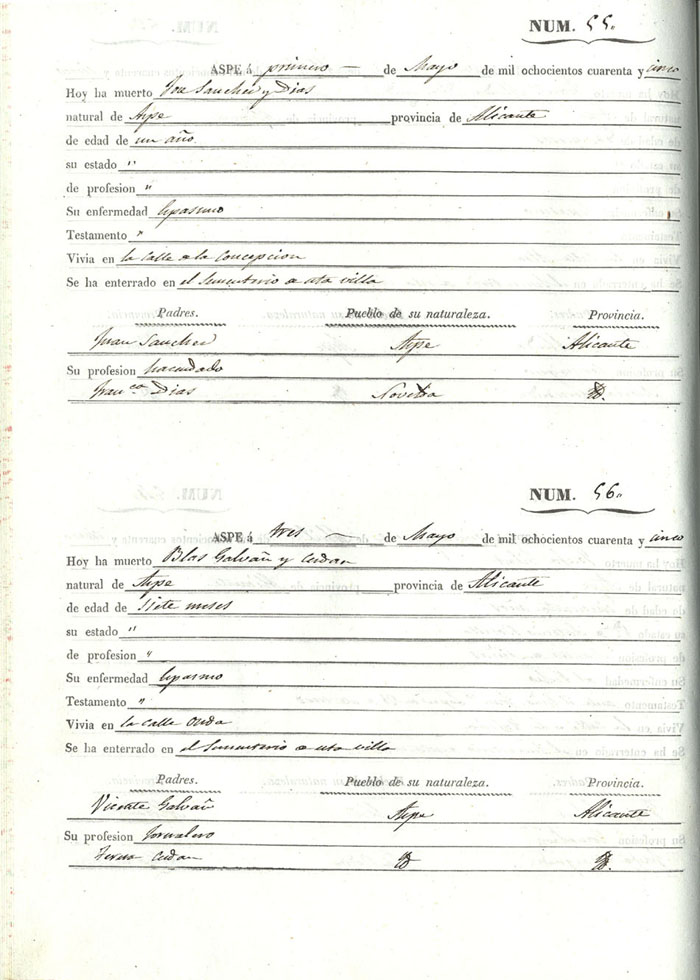 NUM. 55.
ASPE á primero de Mayo de mil ochocientos cuarenta y cinco
Hoy ha muerto Sanchez y Dias
natural de Aspe provincia de Alicante
de edad de un año
su estado "
de profesion "
Su enfermedad Espasmo
Testamento "
Vivia en la Calle de la Concepcion
Se ha enterrado en el Sementerio de esta villa
Padres. Pueblo de su naturaleza. Provincia.
Juan Sanchez Aspe Alicante
Su profesion hacendado
Fran.ca Dias Novelda
NUM. 56.
ASPE á tres de Mayo de mil ochocientos cuarenta y cinco
Hoy ha muerto Blas Galvañ y
natural de Aspe provincia de Alicante
de edad de Siete meses
su estado "
de profesion "
Su enfermedad Espasmo
Testamento "
Vivia en la Calle
Se ha enterrado en el Sementerio de esta villa
Padres. Pueblo de su naturaleza. Provincia.
Vicente Galvañ Aspe Alicante
Su profesion Jornalero